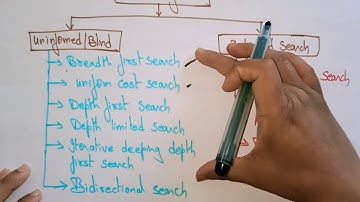 Uninformed/Blind
Breadth first search
uniform cost search
Depth first search
Depth limited search
Iterative deeping depth
first search
Bidirectional search
Search
search